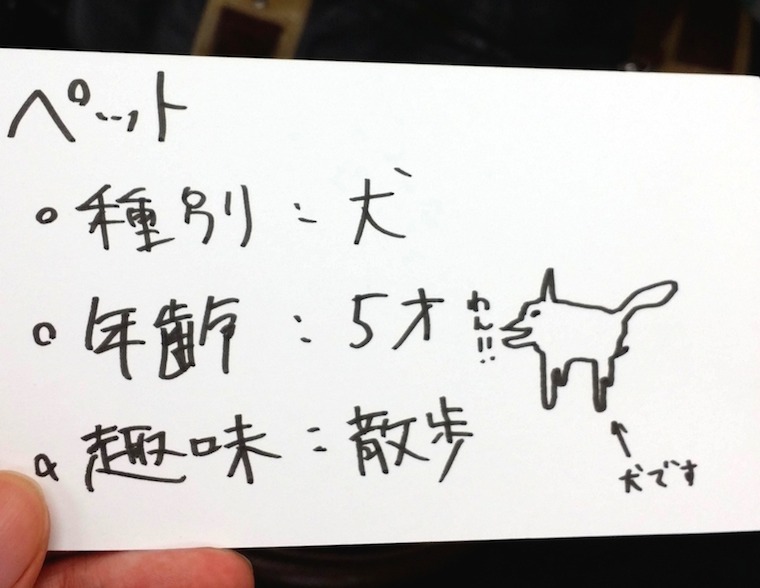 ペット
○ 種別：犬
○ 年齢：5才
○ 趣味：散歩
わん!!
犬です